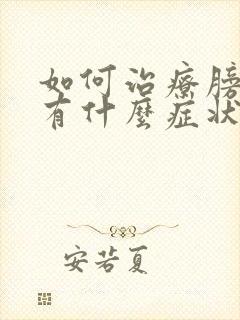 如何治療膀
有什麼症狀
安若夏